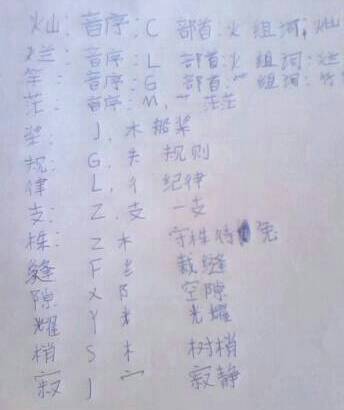 灿: 音序: C 部首: 火 组词: 灿
烂: 音序: L 部首: 火 组词:
竿: 音序: G 部首: ⺮ 组词: 竹
茫: 音序: M, 艹 茫茫
桨: J, 木 船桨
规: G, 夫 规则
律 L, 彳 纪律
支: Z, 支 一支
株: Z 木 守株待兔
缝 F 纟 裁缝
隙 X 阝 空隙
耀 Y 光耀
梢 S 木 树梢
寂 J 宀 寂静